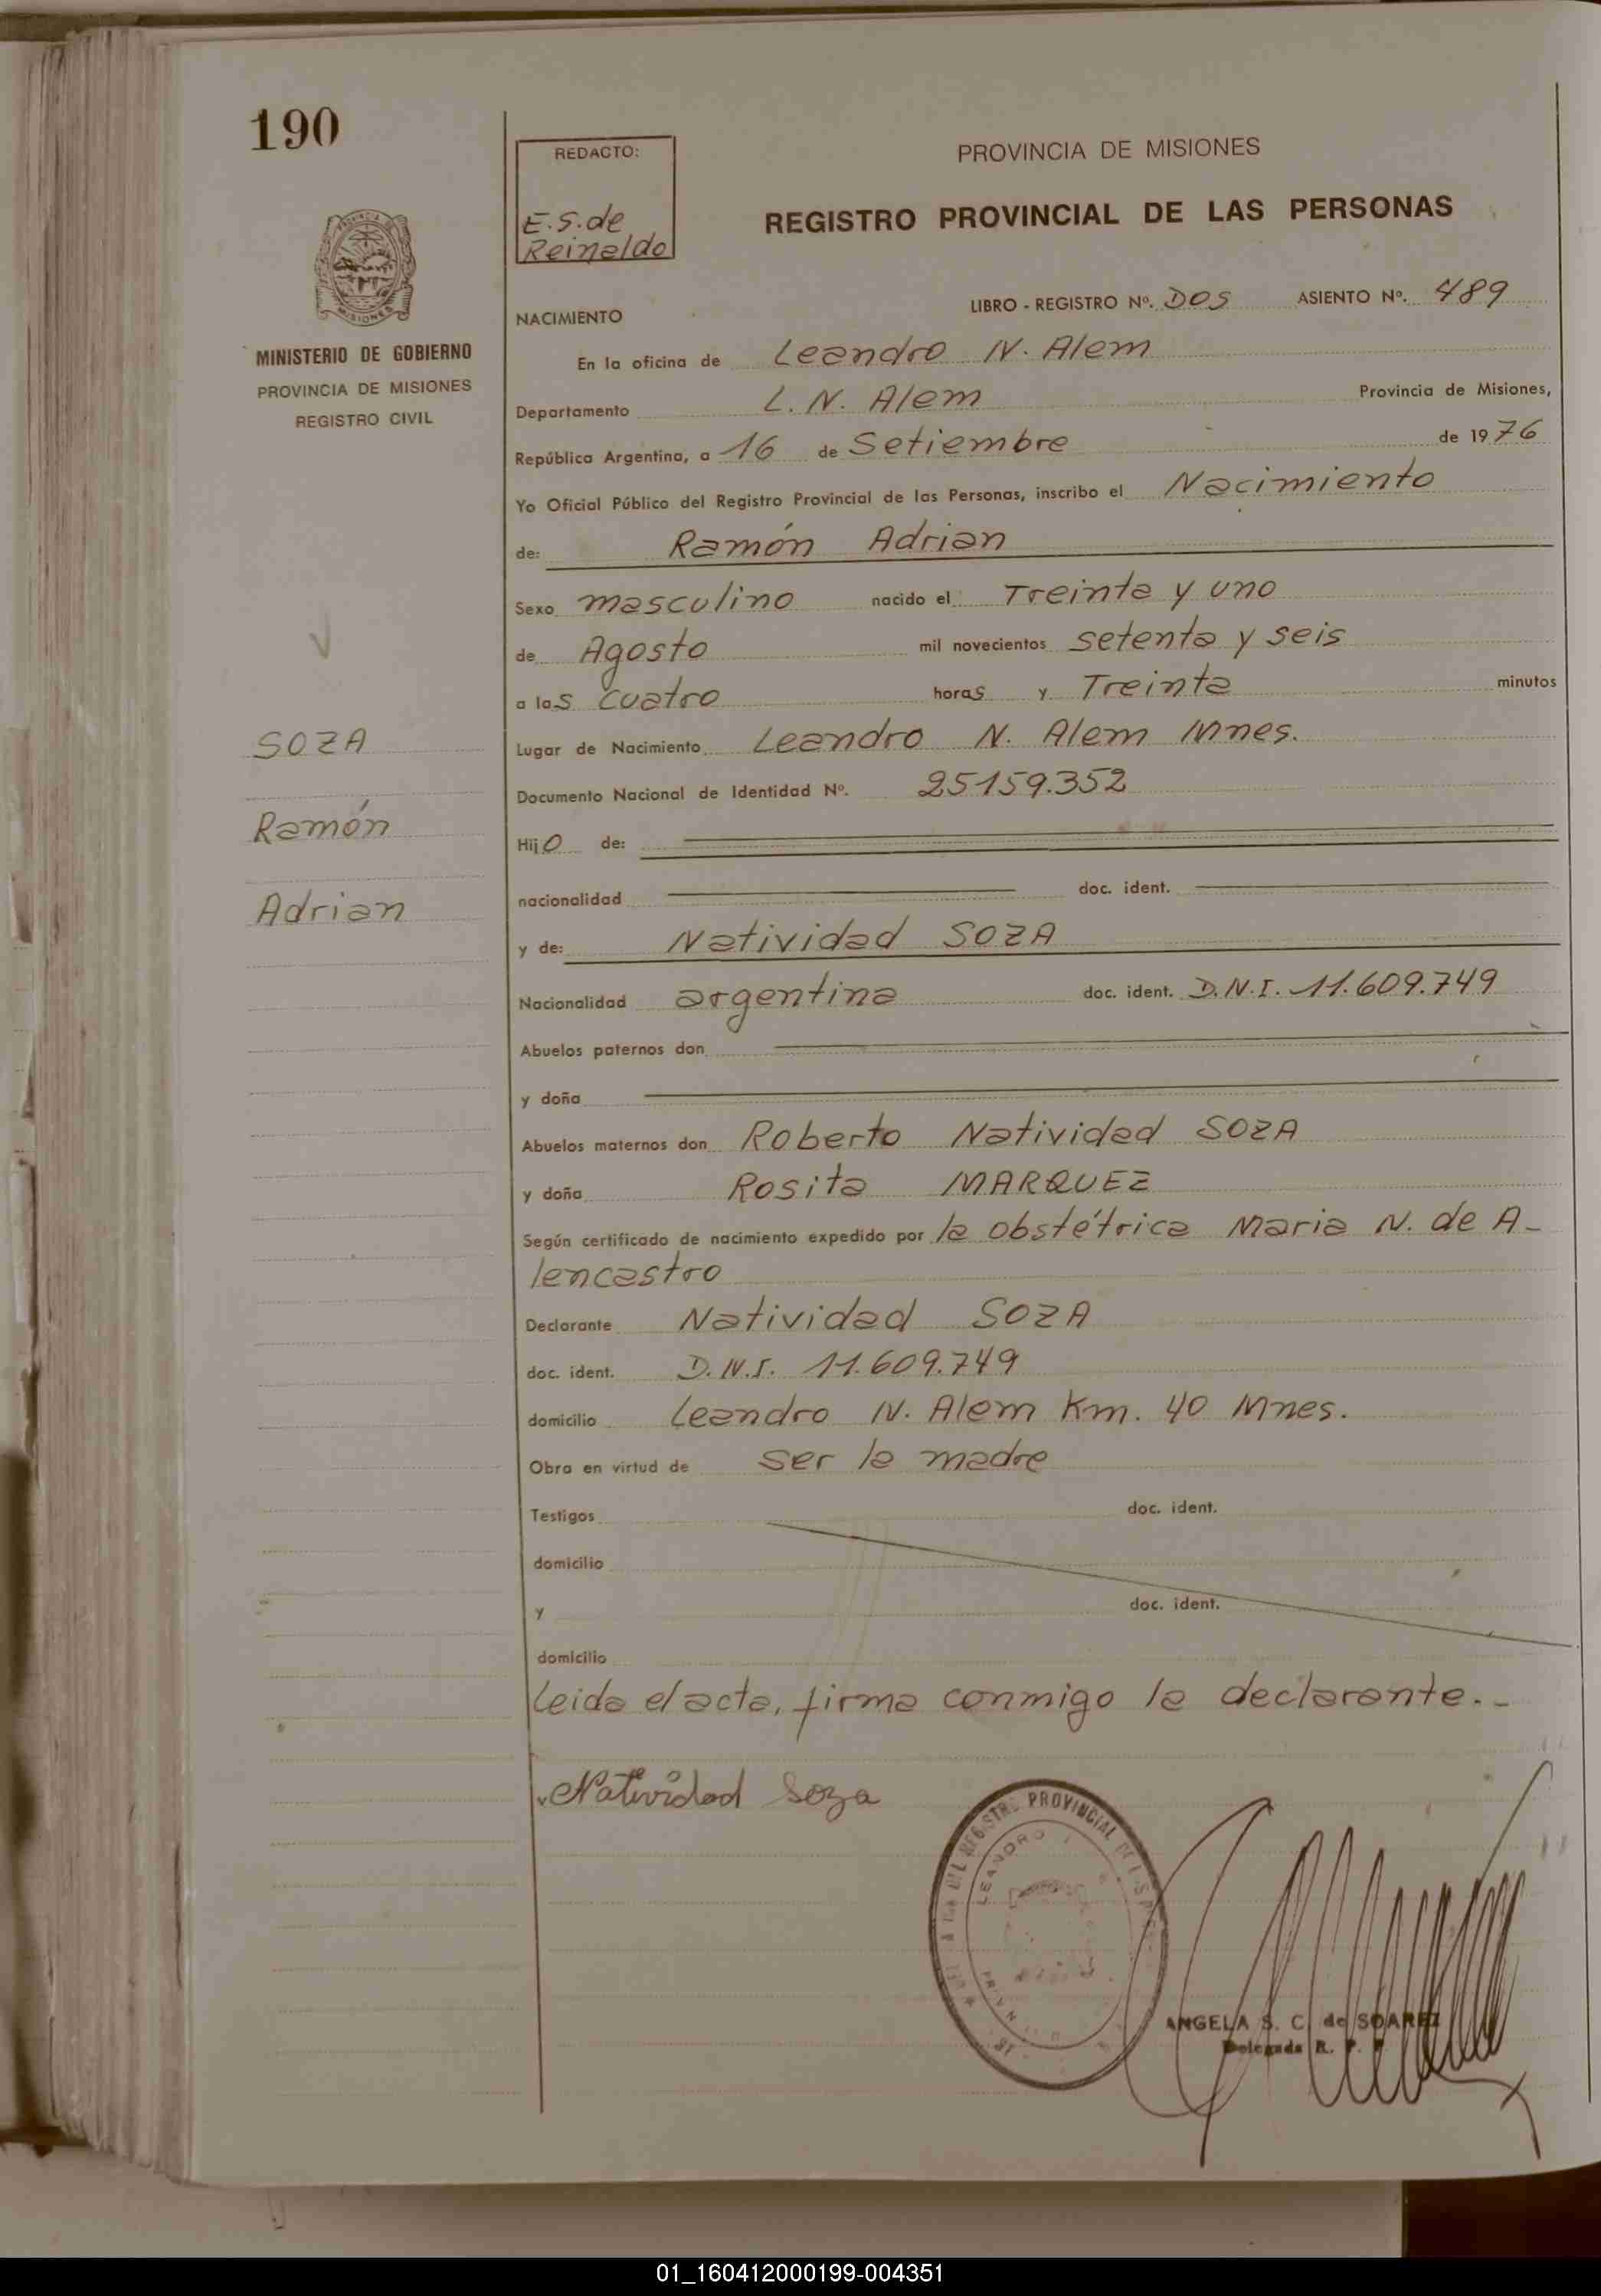 190
REDACTO:
E.S. de
Reinaldo
PROVINCIA DE MISIONES
REGISTRO PROVINCIAL DE LAS PERSONAS
MISIONES
MINISTERIO DE GOBIERNO
PROVINCIA DE MISIONES
REGISTRO CIVIL
LIBRO - REGISTRO Nº. DOS ASIENTO Nº. 489
NACIMIENTO
En la oficina de Leandro N. Alem
Departamento L. N. Alem Provincia de Misiones,
República Argentina, a 16 de Setiembre de 1976
Yo Oficial Público del Registro Provincial de las Personas, inscribo el Nacimiento
de: Ramón Adrian
Sexo masculino nacido el Treinta y uno
de Agosto mil novecientos setenta y seis
a las cuatro horas y Treinta minutos
Lugar de Nacimiento Leandro N. Alem Mnes.
Documento Nacional de Identidad Nº. 25159.352
Hijo de:
nacionalidad doc. ident.
y de: Natividad SOZA
Nacionalidad argentina doc. ident. D.N.I. 11.609.749
Abuelos paternos don
y doña
Abuelos maternos don Roberto Natividad SOZA
y doña Rosita MARQUEZ
Según certificado de nacimiento expedido por la obstétrica Maria N. de A-
lencastro
Declarante Natividad SOZA
doc. ident. D.N.I. 11.609.749
domicilio Leandro N. Alem Km. 40 Mnes.
Obra en virtud de ser la madre
Testigos doc. ident.
domicilio
y doc. ident.
domicilio
Leida el acta, firma conmigo la declarante.-
SOZA
Ramón
Adrian
Natividad Soza
REGISTRO PROVINCIAL
LEANDRO
ANGELA S. C. de SOAREZ
Delegada R. P. P.
01_160412000199-004351